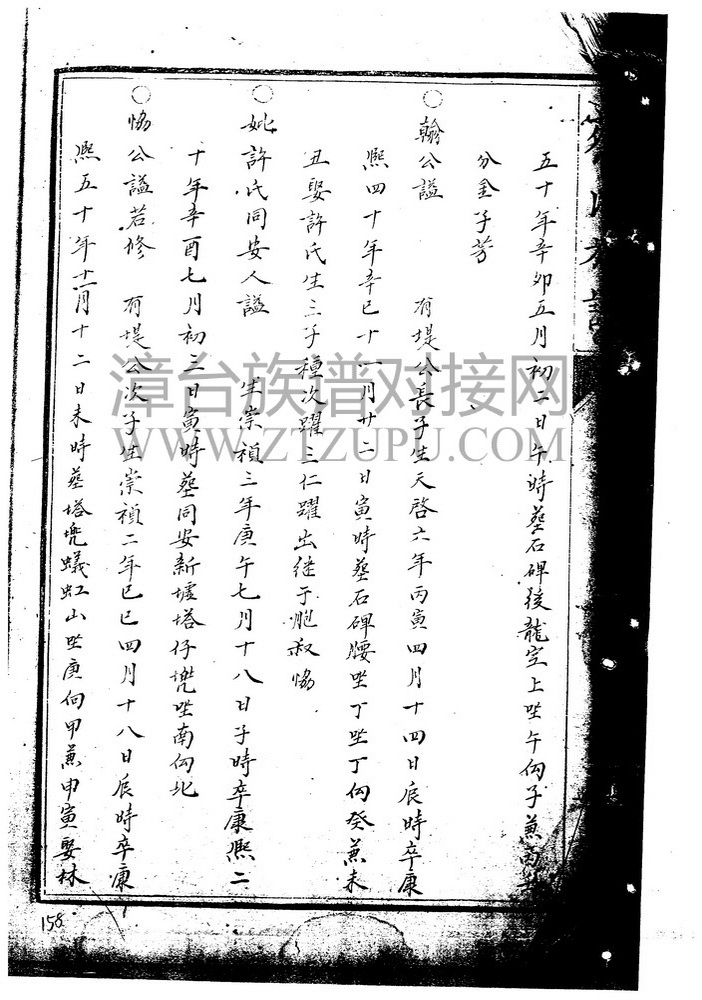 五十年辛卯五月初二日午時墓石碑後龍空上坐午向子兼丙
分金子芳
○翰公諡 有堤公長子生天啓六年丙寅四月十四日辰時卒康
熙四十年辛巳十一月廿二日寅時墓石碑腰坐丁坐丁向癸兼未
丑娶許氏生三子種次躍三仁躍出継于胞叔恊
○妣許氏同安人諡 生崇禎三年庚午七月十八日子時卒康熙二
十年辛酉七月初三日寅時墓同安新墟塔仔垅坐南向北
○恊公諡若修 有堤公次子生崇禎二年已巳四月十八日辰時卒康
熙五十年十一月十二日未時墓塔垅蟻虹山坐庚向甲兼申寅娶林
158
漳台族谱对接网
WWW.ZTZUPU.COM